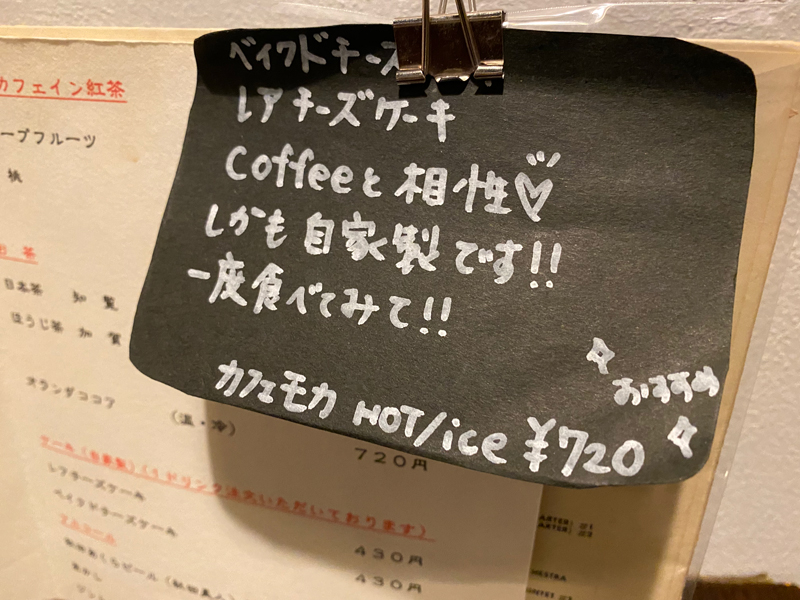 ベイクドチーズ
レアチーズケーキ
Coffeeと相性♡
しかも自家製です!!
一度食べてみて!!
おすすめ
カフェモカ HOT/ice ¥720
カフェイン紅茶
ープフルーツ
桃
茶
日本茶 知覧
ほうじ茶 加賀
オランダココア
(温・冷)
720円
ケーキ(自家製)(1ドリンク注文いただいております)
レアチーズケーキ
430円
ベイクドチーズケーキ
430円
アルコール